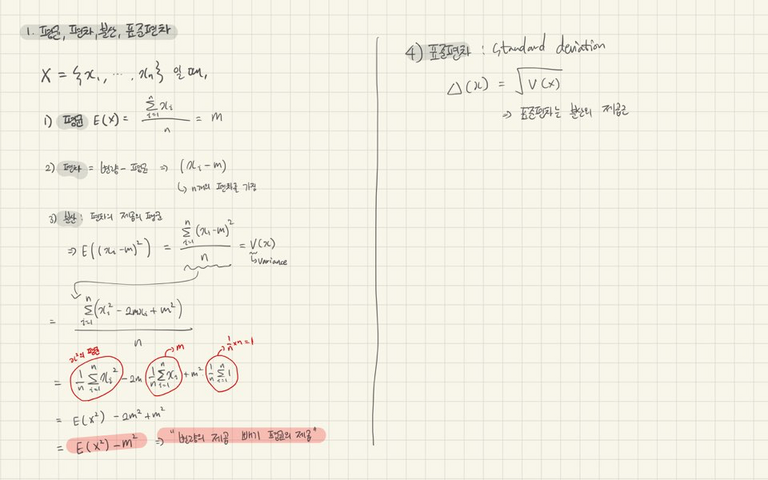 1. 평균, 편차, 분산, 표준편차
X = {x₁, ⋯, xₙ} 일 때,
1) 평균 E(X) = \frac{\sum_{i=1}^{n} x_i}{n} = m
2) 편차 = 변량 - 평균 ⇒ (xᵢ - m)
↳ n개의 편차를 가짐
3) 분산 : 편차의 제곱의 평균
⇒ E((xᵢ-m)²) = \frac{\sum_{i=1}^{n} (x_i-m)^2}{n} = V(x)
↳ variance
= \frac{\sum_{i=1}^{n} (x_i^2 - 2mx_i + m^2)}{n}
x²의 평균 → m → \frac{1}{n}×n=1
= \frac{1}{n}\sum_{i=1}^{n} x_i^2 - 2m \frac{1}{n}\sum_{i=1}^{n} x_i + m² \frac{1}{n}\sum_{i=1}^{n} 1
= E(x²) - 2m² + m²
= E(x²) - m² ⇒ "변량의 제곱 빼기 평균의 제곱"
4) 표준편차 : Standard deviation
△(x) = √V(x)
⇒ 표준편차는 분산의 제곱근